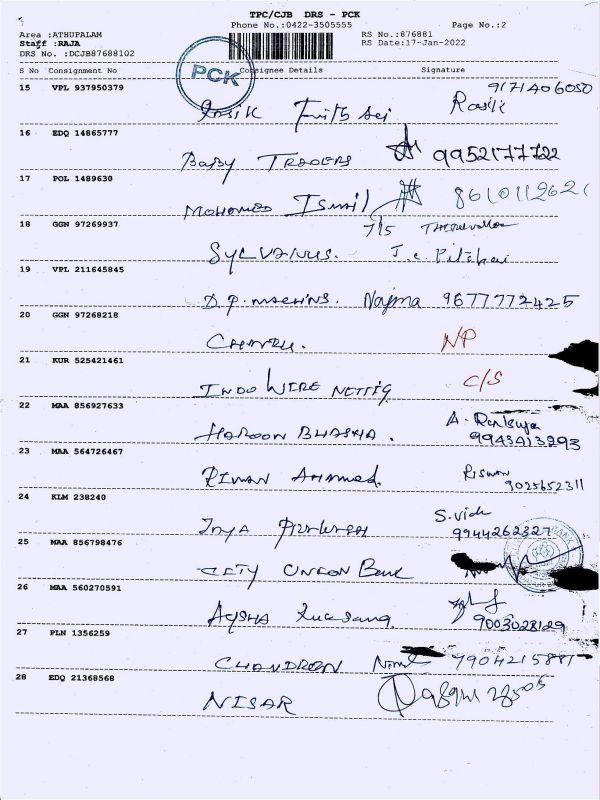 TPC/CJB DRS - PCK
Phone No.:0422-3505555 Page No.:2
Area :ATHUPALAM RS No.:876881
Staff :RAJA RS Date:17-Jan-2022
DRS No. :DCJB87688102
PCK
S No Consignment No Consignee Details Signature
15 VPL 937950379 9171406050
Rasik Fruits Rasik
16 EDQ 14865777
BABY TRADERS 9952177722
17 POL 1489630
MOHAMED Ismail 8610112621
18 GGN 97269937 7/5
SYLVANUS. J.C. Pitchai
19 VPL 211645845
D.P. MACHINS. Najma 9677772425
20 GGN 97268218
NP
21 KUR 525421461
INDO WIRE NETTIG C/S
22 MAA 856927633 A.
HAROON BHASHA. 9943413293
23 MAA 564726467 RISWAN
RIWAN AHAMED. 9025652311
24 KLM 238240 S.
9944262327
25 MAA 856798476
CITY UNION Bank
26 MAA 560270591
AYSHA 9003028129
27 PLN 1356259
CHANDRAN 7904215881
28 EDQ 21368568
NISAR